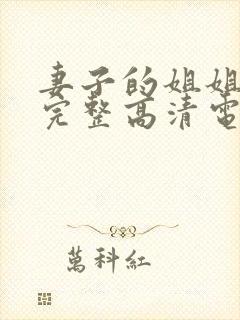 妻子的姐姐
完整高清電
萬科紅